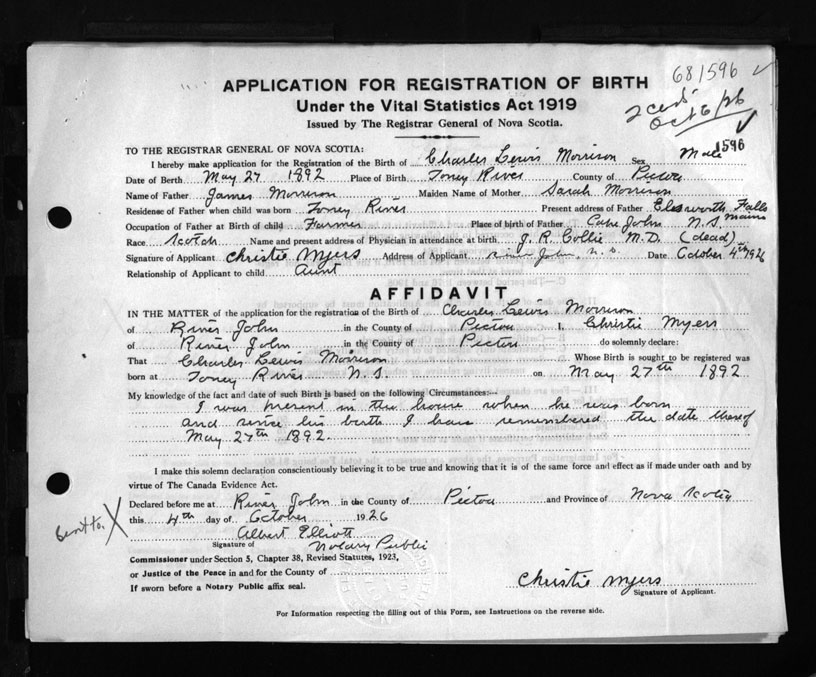 681596 ✓
APPLICATION FOR REGISTRATION OF BIRTH
Under the Vital Statistics Act 1919
2 certs Oct 6/26 ✓
Issued by The Registrar General of Nova Scotia.
1596
TO THE REGISTRAR GENERAL OF NOVA SCOTIA:
I hereby make application for the Registration of the Birth of Charles Lewis Morrison Sex Male
Date of Birth May 27 1892 Place of Birth Toney River County of Pictou
Name of Father James Morrison Maiden Name of Mother Sarah Morrison
Residense of Father when child was born Toney River Present address of Father Elesworth Falls Maine
Occupation of Father at Birth of child Farmer Place of birth of Father Cape John N.S.
Race Scotch Name and present address of Physician in attendance at birth J. R. Collie M.D. (dead)
Signature of Applicant Christie Myers Address of Applicant River John, N.S. Date October 4th 1926
Relationship of Applicant to child Aunt
AFFIDAVIT
IN THE MATTER of the application for the registration of the Birth of Charles Lewis Morrison
of River John in the County of Pictou I, Christie Myers
of River John in the County of Pictou do solemnly declare:
That Charles Lewis Morrison Whose Birth is sought to be registered was
born at Toney River N.S. on May 27th 1892
My knowledge of the fact and date of such Birth is based on the following Circumstances:—
I was present in the house when he was born
and since his birth I have remembered the date thereof
May 27th 1892.
I make this solemn declaration conscientiously believing it to be true and knowing that it is of the same force and effect as if made under oath and by
virtue of The Canada Evidence Act.
Declared before me at River John in the County of Pictou and Province of Nova Scotia
this 4th day of October 1926
Albert Elliott
Signature of Notary Public
Commissioner under Section 5, Chapter 38, Revised Statutes, 1923,
or Justice of the Peace in and for the County of
If sworn before a Notary Public affix seal.
Christie Myers
Signature of Applicant.
For Information respecting the filling out of this Form, see Instructions on the reverse side.